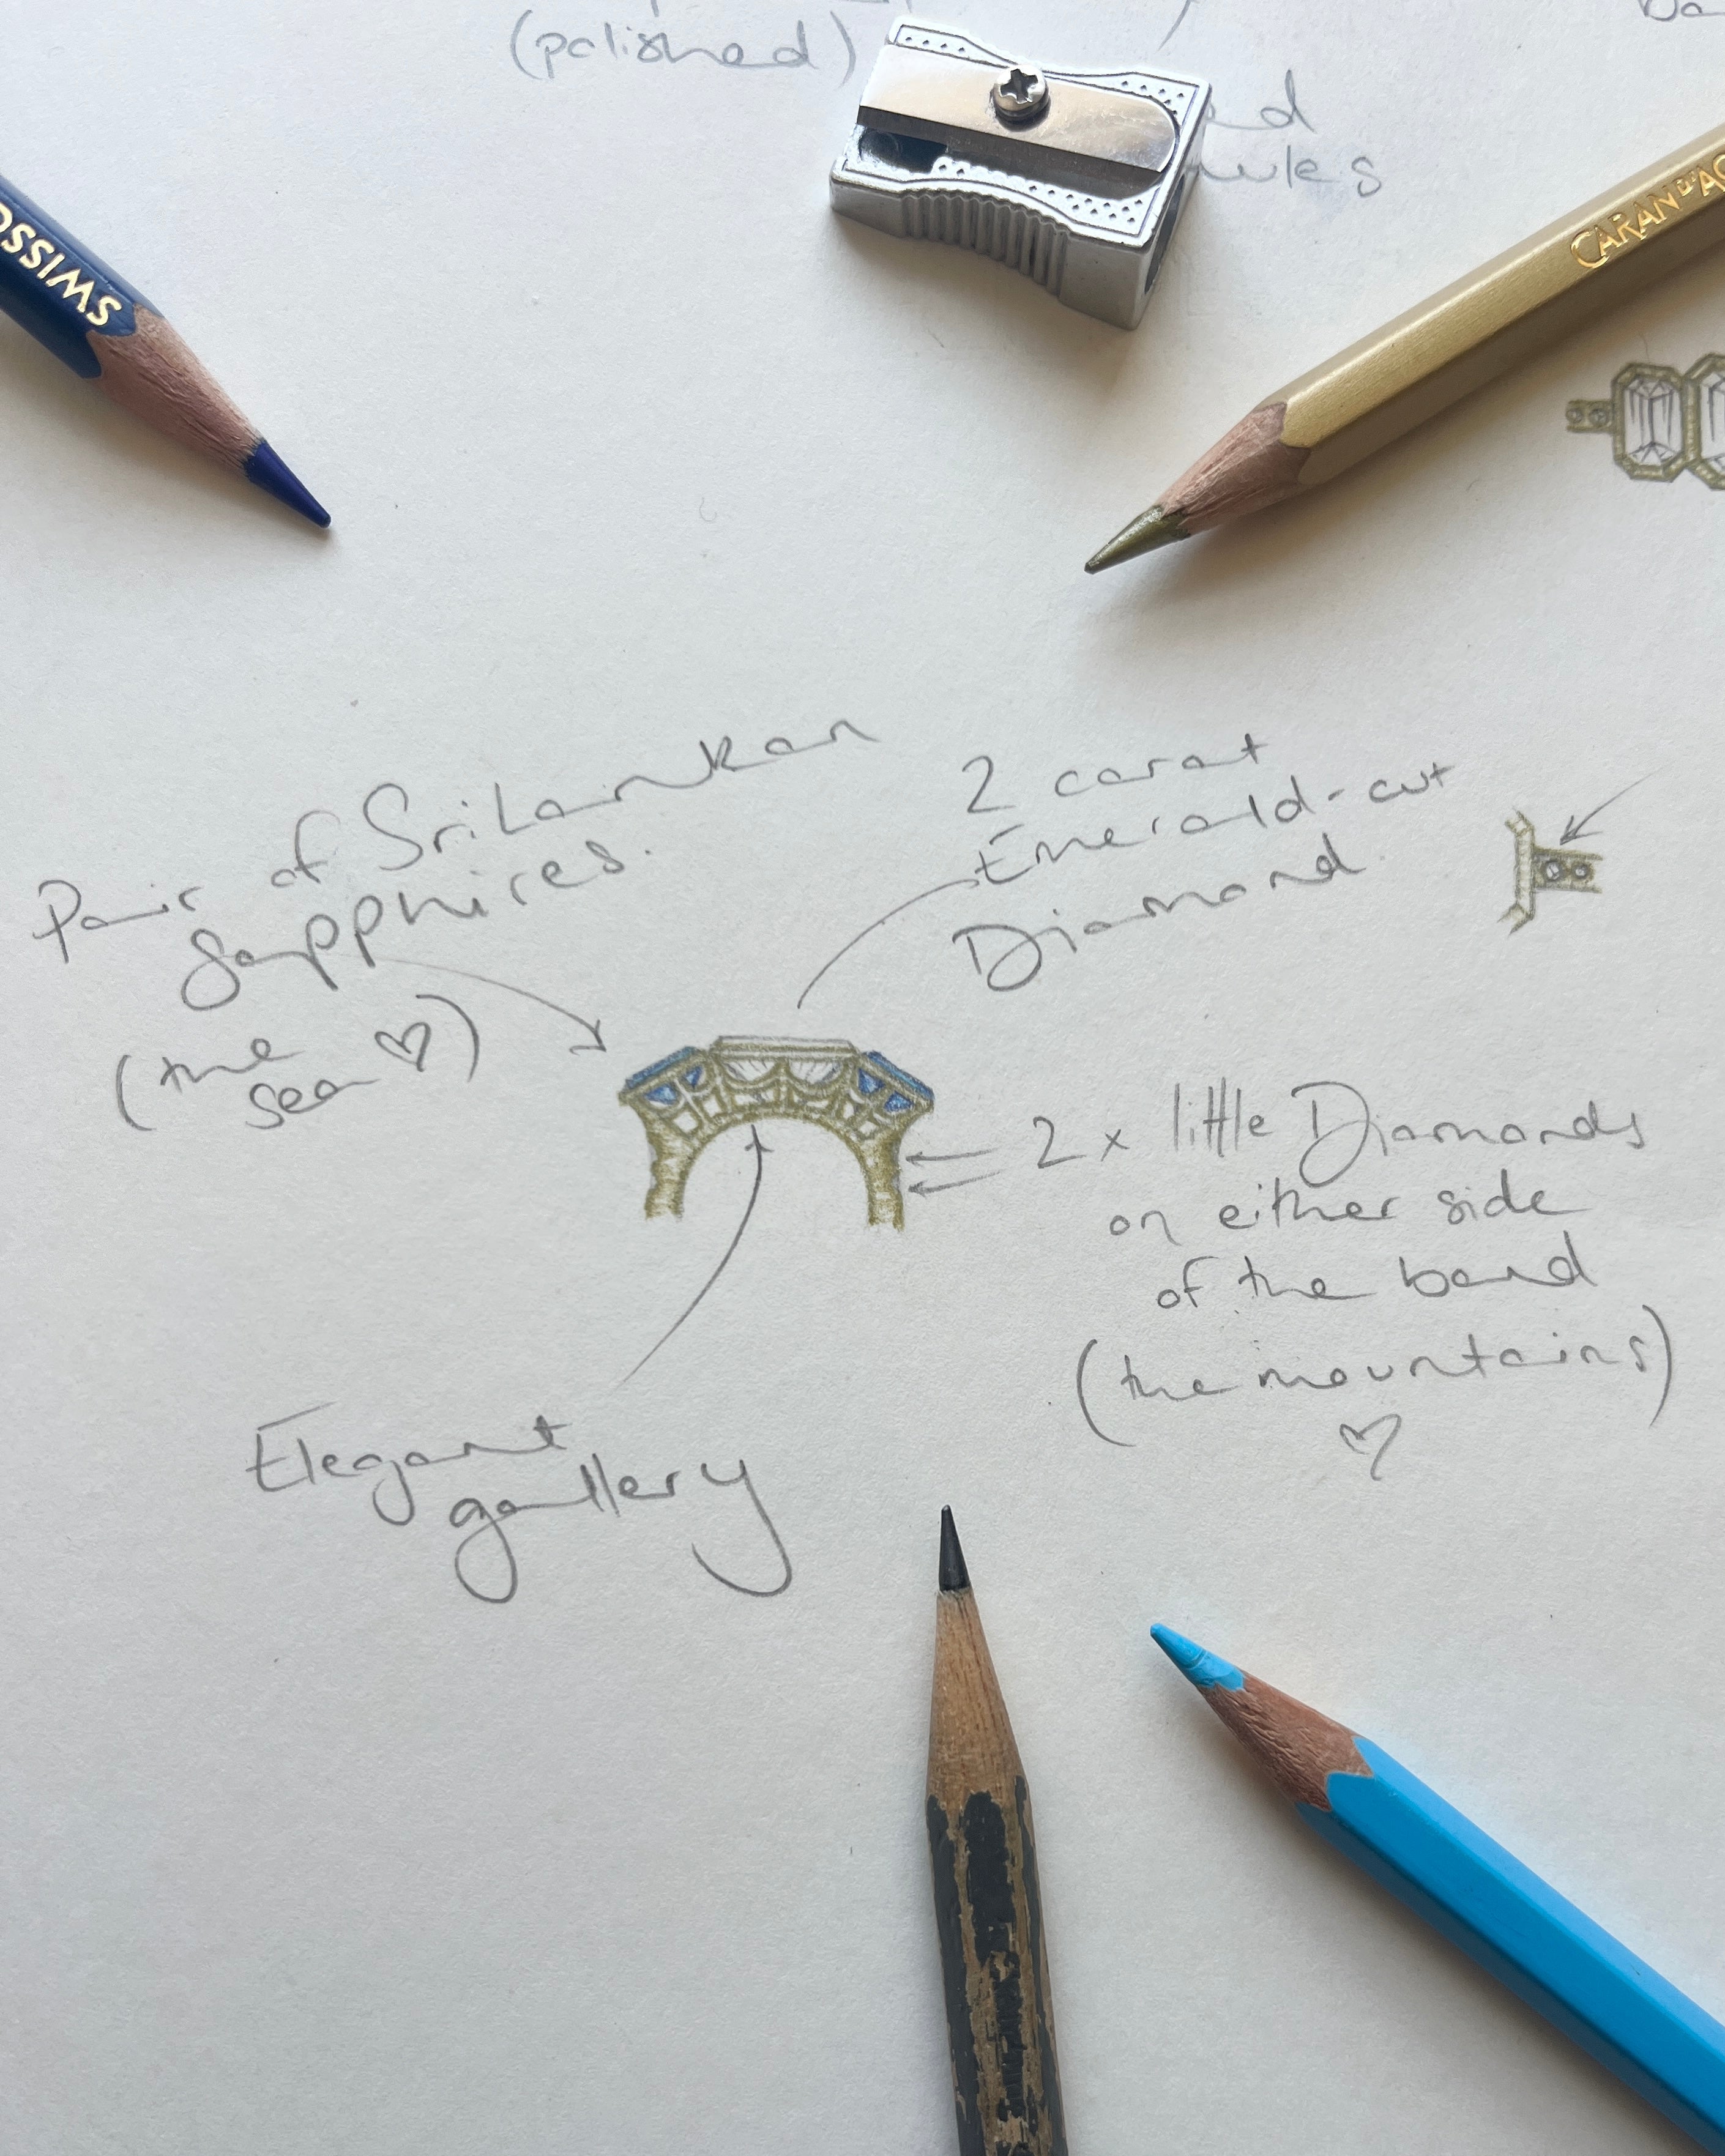 (polished)
SWISSC
CARAN D'AC
Pair of Sri Lankan
Sapphires.
(the ♡)
sea
2 carat
Emerald-cut
Diamond
2 x little Diamonds
on either side
of the band
(the mountains)
♡
Elegant
gallery